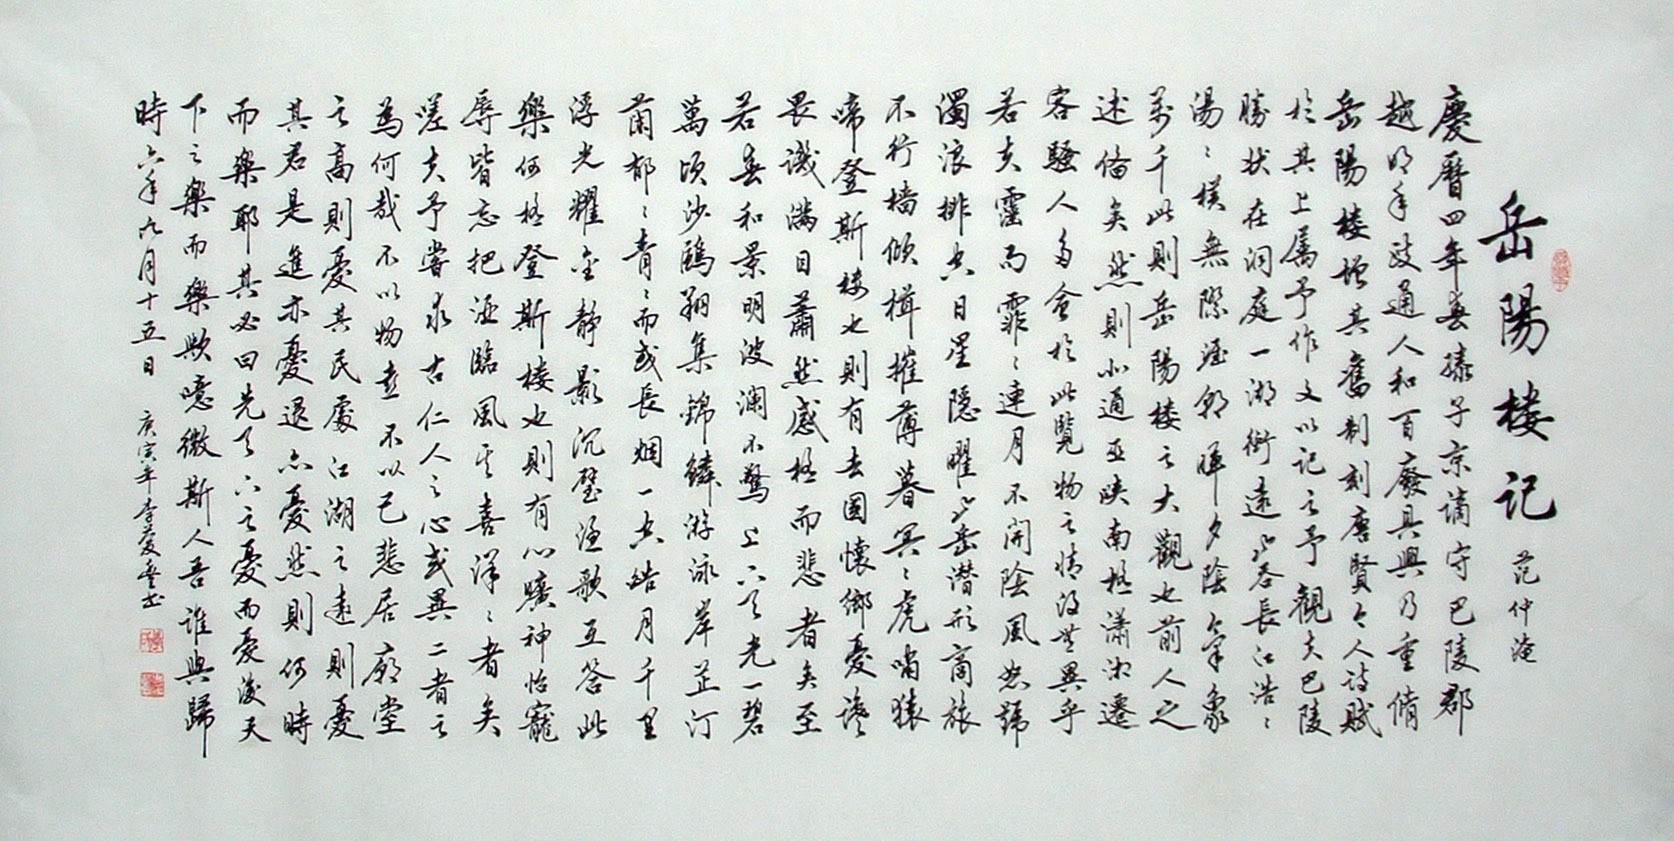 岳陽楼记 范仲淹
慶曆四年春滕子京謫守巴陵郡
越明年政通人和百廢具興乃重脩
岳陽楼增其舊制刻唐賢今人詩賦
於其上属予作文以记之予觀夫巴陵
勝状在洞庭一湖銜遠山吞長江浩〻
湯〻横無際涯朝暉夕陰氣象
万千此則岳陽楼之大觀也前人之
述俻矣然則北通巫峡南極潇湘遷
客騷人多會於此覧物之情得無異乎
若夫霪雨霏〻連月不開陰風怒號
濁浪排空日星隐曜山岳潜形商旅
不行檣傾楫摧薄暮冥〻虎嘯猿
啼登斯楼也則有去國懷鄉憂讒
畏譏滿目蕭然感極而悲者矣至
若春和景明波澜不驚上下天光一碧
萬顷沙鷗翔集錦鱗游泳岸芷汀
蘭郁〻青〻而或長烟一空皓月千里
浮光耀金静影沉璧渔歌互答此
樂何極登斯楼也則有心曠神怡寵
辱皆忘把酒臨風其喜洋〻者矣
嗟夫予嘗求古仁人之心或異二者之
為何哉不以物喜不以己悲居廟堂
之高則憂其民處江湖之遠則憂
其君是進亦憂退亦憂然則何時
而樂耶其必曰先天下之憂而憂後天
下之樂而樂歟噫微斯人吾誰與歸
時六年九月十五日 庚寅年李愛書